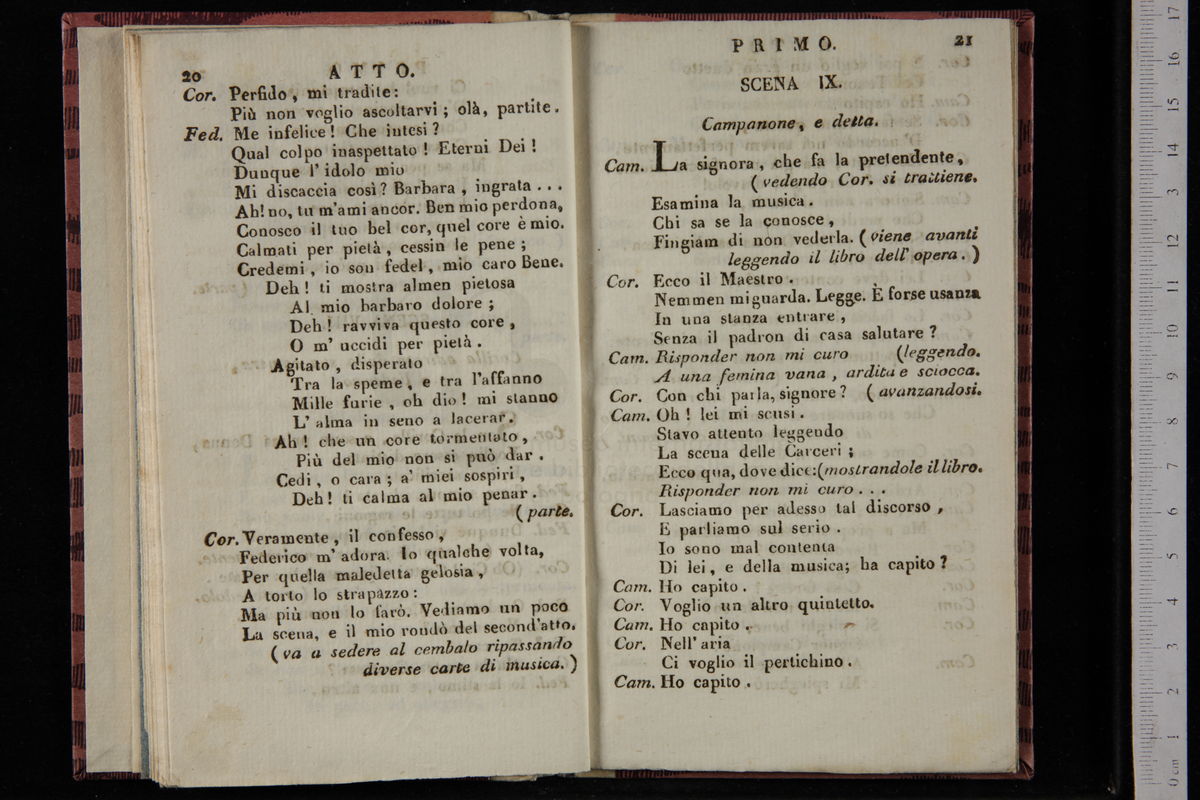 20 ATTO.
Cor. Perfido, mi tradite:
Più non voglio ascoltarvi; olà, partite.
Fed. Me infelice! Che intesi?
Qual colpo inaspettato! Eterni Dei!
Dunque l'idolo mio
Mi discaccia così? Barbara, ingrata...
Ah! no, tu m'ami ancor. Ben mio perdona,
Conosco il tuo bel cor, quel core è mio.
Calmati per pietà, cessin le pene;
Credemi, io son fedel, mio caro Bene.
Deh! ti mostra almen pietosa
Al mio barbaro dolore;
Deh! ravviva questo core,
O m'uccidi per pietà.
Agitato, disperato
Tra la speme, e tra l'affanno
Mille furie, oh dio! mi stanno
L'alma in seno a lacerar.
Ah! che un core tormentato,
Più del mio non si può dar.
Cedi, o cara; a' miei sospiri,
Deh! ti calma al mio penar.
(parte.
Cor. Veramente, il confesso,
Federico m'adora. Io qualche volta,
Per quella maledetta gelosia,
A torto lo strapazzo:
Ma più non lo farò. Vediamo un poco
La scena, e il mio rondò del second'atto.
(va a sedere al cembalo ripassando
diverse carte di musica.)
PRIMO. 21
SCENA IX.
Campanone, e detta.
Cam. La signora, che fa la pretendente,
(vedendo Cor. si trattiene.
Esamina la musica.
Chi sa se la conosce,
Fingiam di non vederla. (viene avanti
leggendo il libro dell'opera.)
Cor. Ecco il Maestro.
Nemmen mi guarda. Legge. È forse usanza
In una stanza entrare,
Senza il padron di casa salutare?
Cam. Risponder non mi curo (leggendo.
A una femina vana, ardita e sciocca.
Cor. Con chi parla, signore? (avanzandosi.
Cam. Oh! lei mi scusi.
Stavo attento leggendo
La scena delle Carceri;
Ecco qua, dove dice:(mostrandole il libro.
Risponder non mi curo...
Cor. Lasciamo per adesso tal discorso,
E parliamo sul serio.
Io sono mal contenta
Di lei, e della musica; ha capito?
Cam. Ho capito.
Cor. Voglio un altro quintetto.
Cam. Ho capito.
Cor. Nell'aria
Ci voglio il pertichino.
Cam. Ho capito.